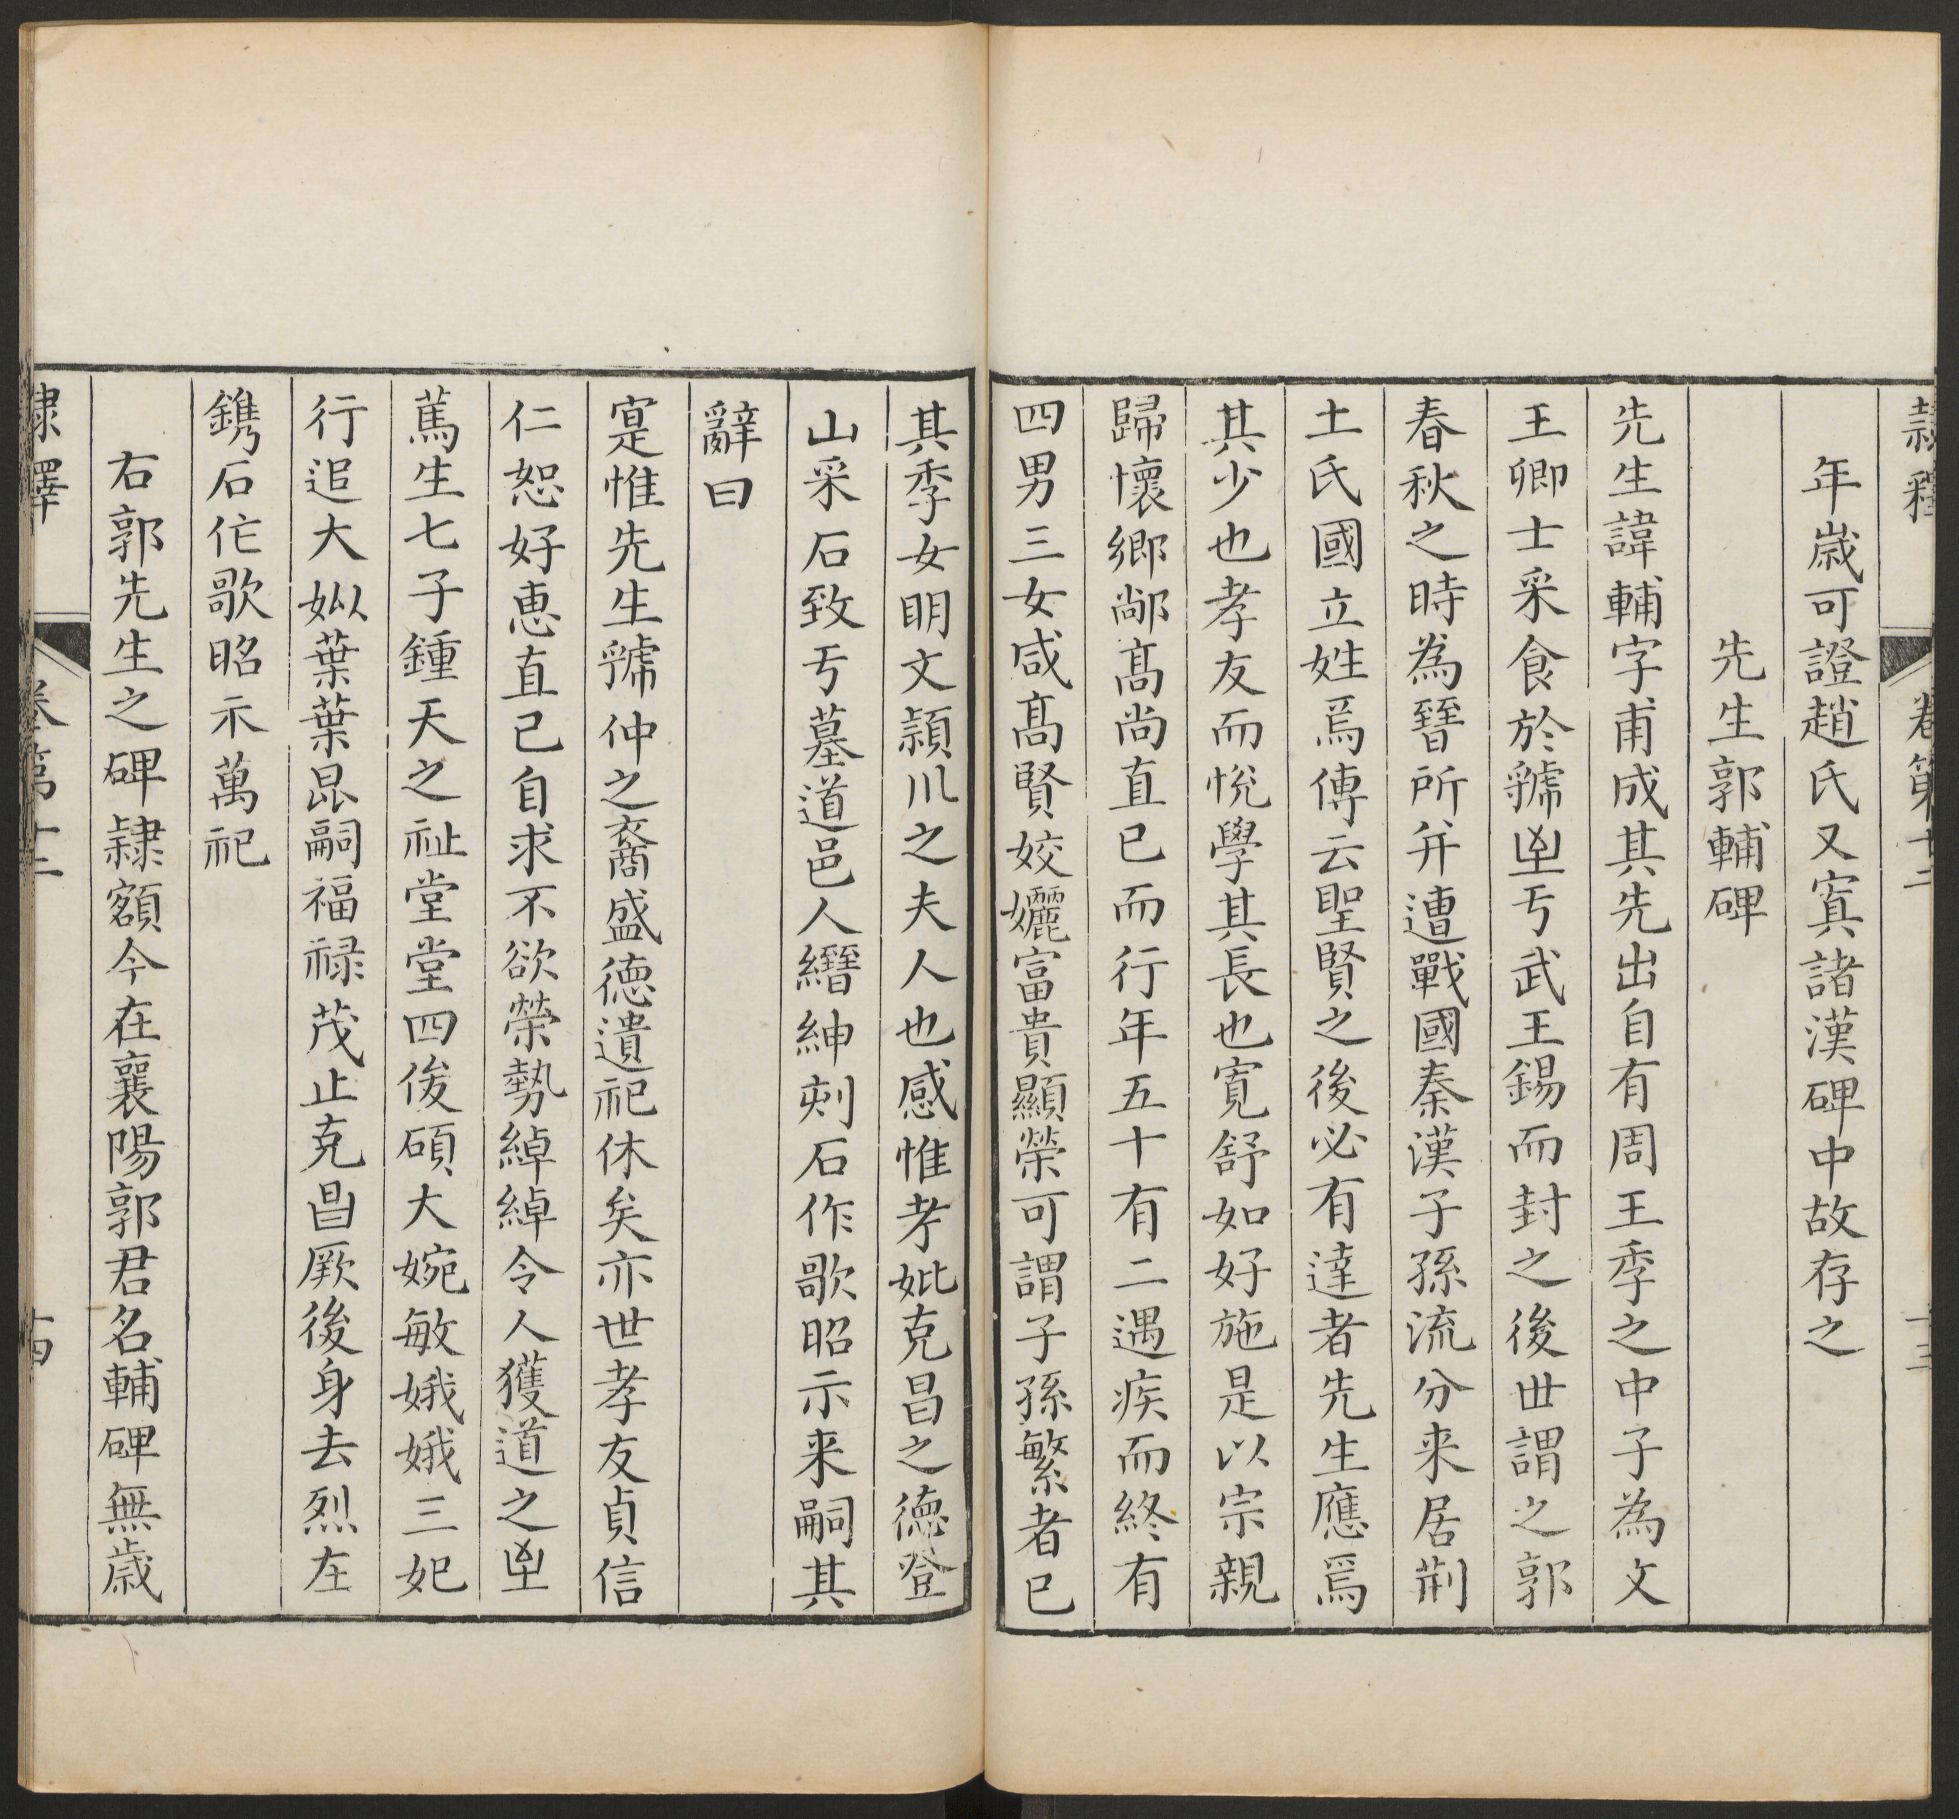 隸釋 卷第十二 十三
年歲可證趙氏又寘諸漢碑中故存之
先生郭輔碑
先生諱輔字甫成其先出自有周王季之中子為文
王卿士采食於虢㞷亐武王錫而封之後世謂之郭
春秋之時為晉所并遭戰國秦漢子孫流分来居荆
土氏國立姓焉傳云聖賢之後必有達者先生應焉
其少也孝友而悅學其長也寛舒如好施是以宗親
歸懷鄉郷髙尚直已而行年五十有二遇疾而終有
四男三女咸髙賢姣孋富貴顯榮可謂子孫繁者已
其季女眀文潁川之夫人也感惟考妣克昌之德登
山采石致亐墓道邑人縉紳刻石作歌昭示来嗣其
辭曰
寔惟先生虢仲之裔盛德遺祀休矣亦世孝友貞信
仁恕好惠直己自求不欲榮勢綽綽令人獲道之㞷
蔿生七子鍾天之祉堂堂四俊碩大婉敏娥娥三妃
行追大姒葉葉昆嗣福禄茂止克昌厥後身去烈在
鐫石作歌昭示萬祀
右郭先生之碑隸額今在襄陽郭君名輔碑無歲
隸釋 卷第十二 十四